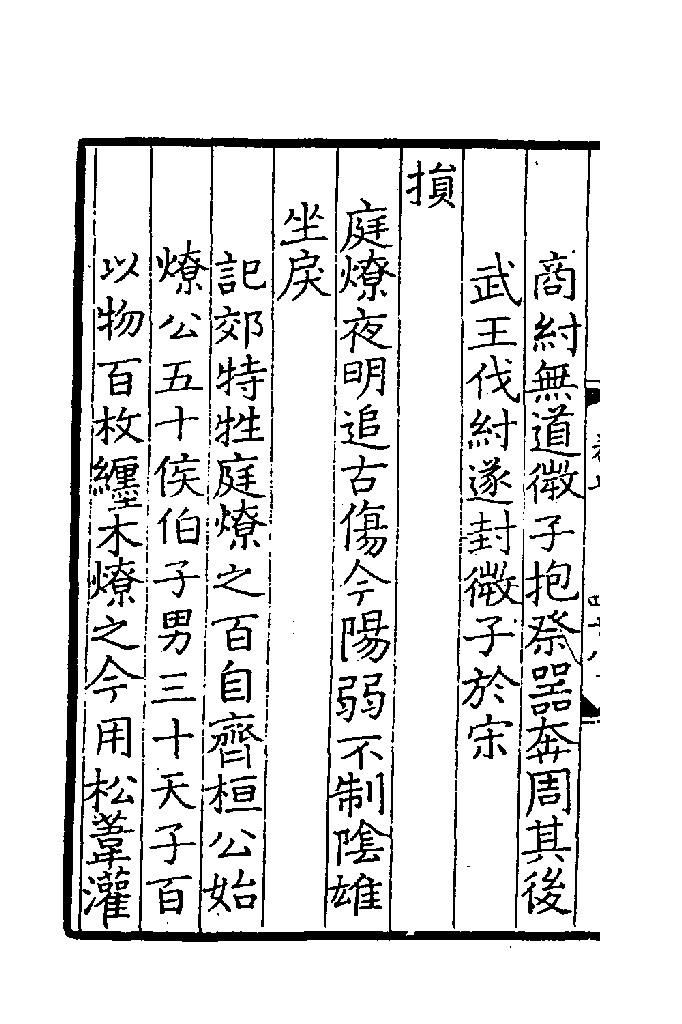 商紂無道微子抱祭器奔周其後
武王伐紂遂封微子於宋
損
庭燎夜明追古傷今陽弱不制陰雄
坐戾
記郊特牲庭燎之百自齊桓公始
燎公五十侯伯子男三十天子百
以物百枚纏木燎之今用松葦灌